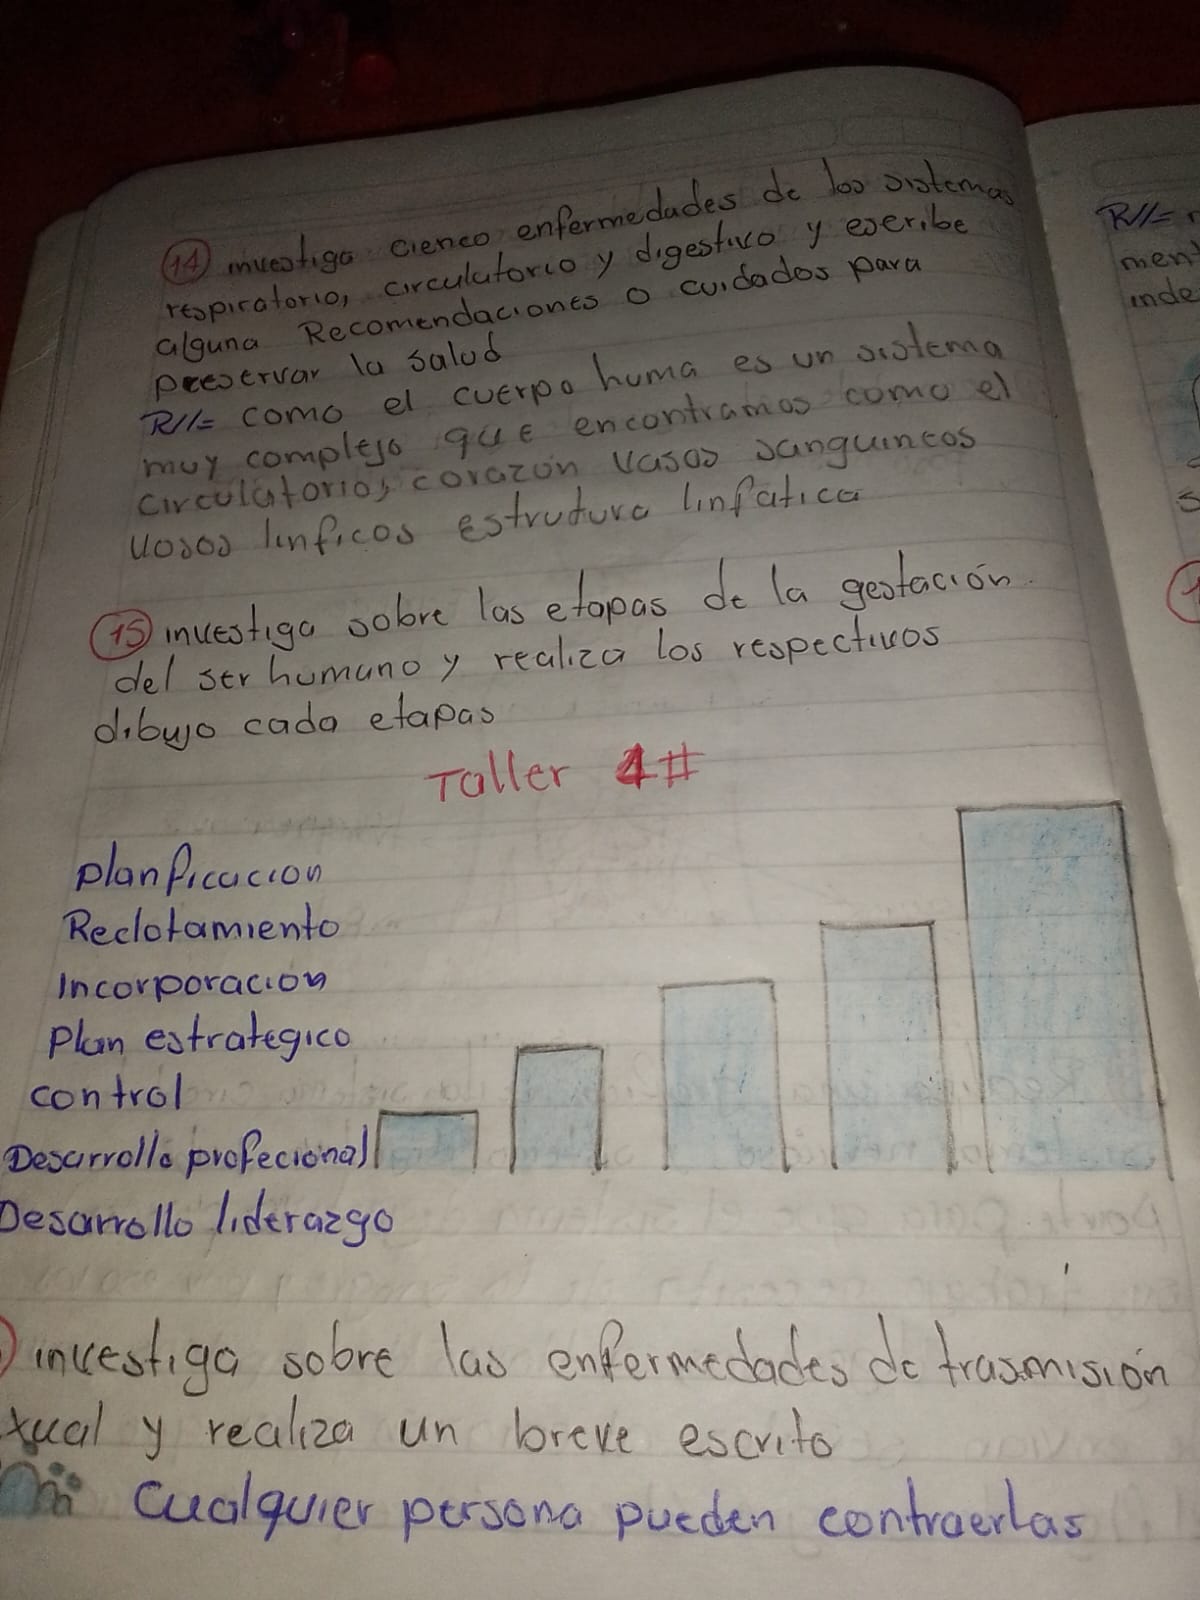 14 investiga cienco enfermedades de los sistemas
respiratorio, circulatorio y digestivo y escribe
alguna Recomendaciones o cuidados para
preservar la salud
R//= como el cuerpo huma es un sistema
muy complejo que encontramos como el
circulatorio, corazón vasos sanguineos
vosos linficos estrutura linfatica
15 investiga sobre las etapas de la gestación
del ser humano y realiza los respectivos
dibujo cada etapas
Taller 4#
planficacion
Reclotamiento
Incorporacion
Plan estrategico
control
Desarrollo profecional
Desarrollo liderazgo
investiga sobre las enfermedades de trasmisión
xual y realiza un breve escrito
Cualquier persona pueden contraerlas
R//=
men
inde